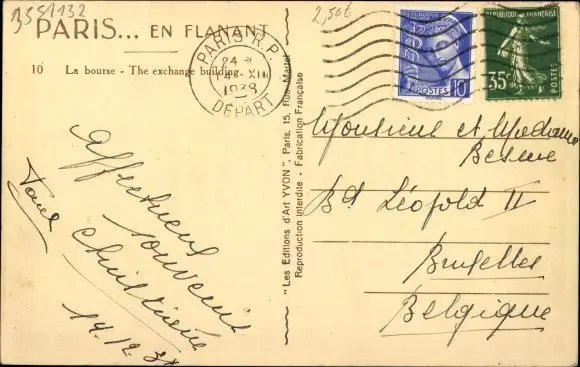 B551132
2,50€
PARIS... EN FLANANT
10 La bourse - The exchange building.
PARIS R.P.
24 *
14 XII
1938
DÉPART
POSTES
10c
REPUBLIQUE FRANÇAISE
35c
POSTES
"Les Editions d'Art YVON", Paris, 15, Rue Martel
Reproduction Interdite - Fabrication Française
Affectueux
souvenir
chrétienne
14-12-38
Monsieur et Madame
Bd Léopold II
Bruxelles
Belgique